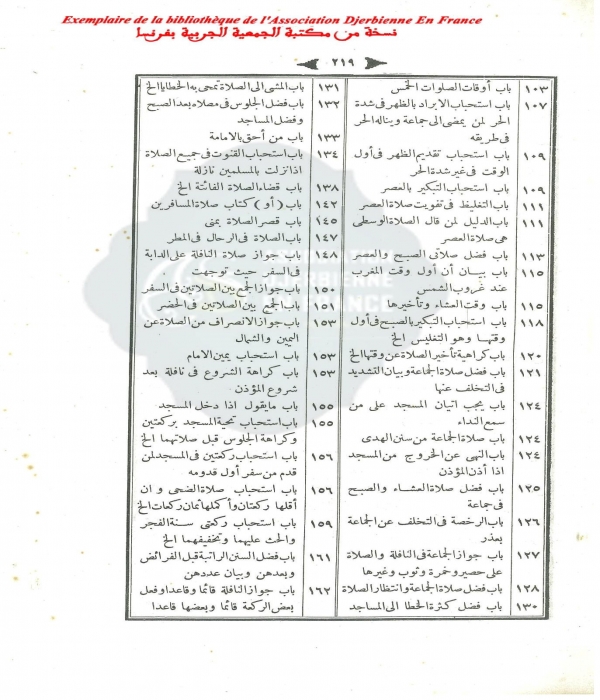 Exemplaire de la bibliothèque de l'Association Djerbienne En France
نسخة من مكتبة الجمعية الجربية بفرنسا
٢١٩
١٠٣ باب أوقات الصلوات الخمس
١٠٧ باب استحباب الابراد بالظهر فى شدة
الحر لمن يمضى الى جماعة ويناله الحر
فى طريقه
١٠٩ باب استحباب تقديم الظهر فى أول
الوقت فى غير شدة الحر
١٠٩ باب استحباب التبكير بالعصر
١١١ باب التغليظ فى تفويت صلاة العصر
١١١ باب الدليل لمن قال الصلاة الوسطى
هى صلاة العصر
١١٣ باب فضل صلاتى الصبح والعصر
١١٥ باب بيان أن أول وقت المغرب
عند غروب الشمس
١١٥ باب وقت العشاء وتأخيرها
١١٨ باب استحباب التبكير بالصبح فى أول
وقتها وهو التغليس الخ
١٢٠ باب كراهية تأخير الصلاة عن وقتها الخ
١٢١ باب فضل صلاة الجماعة وبيان التشديد
فى التخلف عنها
١٢٤ باب يجب اتيان المسجد على من
سمع النداء
١٢٤ باب صلاة الجماعة من سنن الهدى
١٢٤ باب النهى عن الخروج من المسجد
اذا أذن المؤذن
١٢٥ باب فضل صلاة العشاء والصبح
فى جماعة
١٢٦ باب الرخصة فى التخلف عن الجماعة
بعذر
١٢٧ باب جواز الجماعة فى النافلة والصلاة
على حصير وخمرة وثوب وغيرها
١٢٨ باب فضل صلاة الجماعة وانتظار الصلاة
١٣٠ باب فضل كثرة الخطا الى المساجد
١٣١ باب المشى الى الصلاة تمحى به الخطايا الخ
١٣٢ باب فضل الجلوس فى مصلاه بعد الصبح
وفضل المساجد
١٣٣ باب من أحق بالامامة
١٣٤ باب استحباب القنوت فى جميع الصلاة
اذا نزلت بالمسلمين نازلة
١٣٨ باب قضاء الصلاة الفائتة الخ
١٤٢ باب (أو) كتاب صلاة المسافرين
١٤٥ باب قصر الصلاة بمنى
١٤٧ باب الصلاة فى الرحال فى المطر
١٤٨ باب جواز صلاة النافلة على الدابة
فى السفر حيث توجهت
١٥٠ باب جواز الجمع بين الصلاتين فى السفر
١٥١ باب الجمع بين الصلاتين فى الحضر
١٥٣ باب جواز الانصراف من الصلاة عن
اليمين والشمال
١٥٣ باب استحباب يمين الامام
١٥٣ باب كراهة الشروع فى نافلة بعد
شروع المؤذن
١٥٥ باب مايقول اذا دخل المسجد
١٥٥ باب استحباب تحية المسجد بركعتين
وكراهة الجلوس قبل صلاتهما الخ
١٥٦ باب استحباب ركعتين فى المسجد لمن
قدم من سفر أول قدومه
١٥٦ باب استحباب صلاة الضحى وان
أقلها ركعتان وأكملها ثمان ركعات الخ
١٥٩ باب استحباب ركعتى سنة الفجر
والحث عليهما وتخفيفهما الخ
١٦١ باب فضل السنن الراتبة قبل الفرائض
وبعدهن وبيان عددهن
١٦٢ باب جواز النافلة قائما وقاعدا وفعل
بعض الركعة قائما وبعضها قاعدا